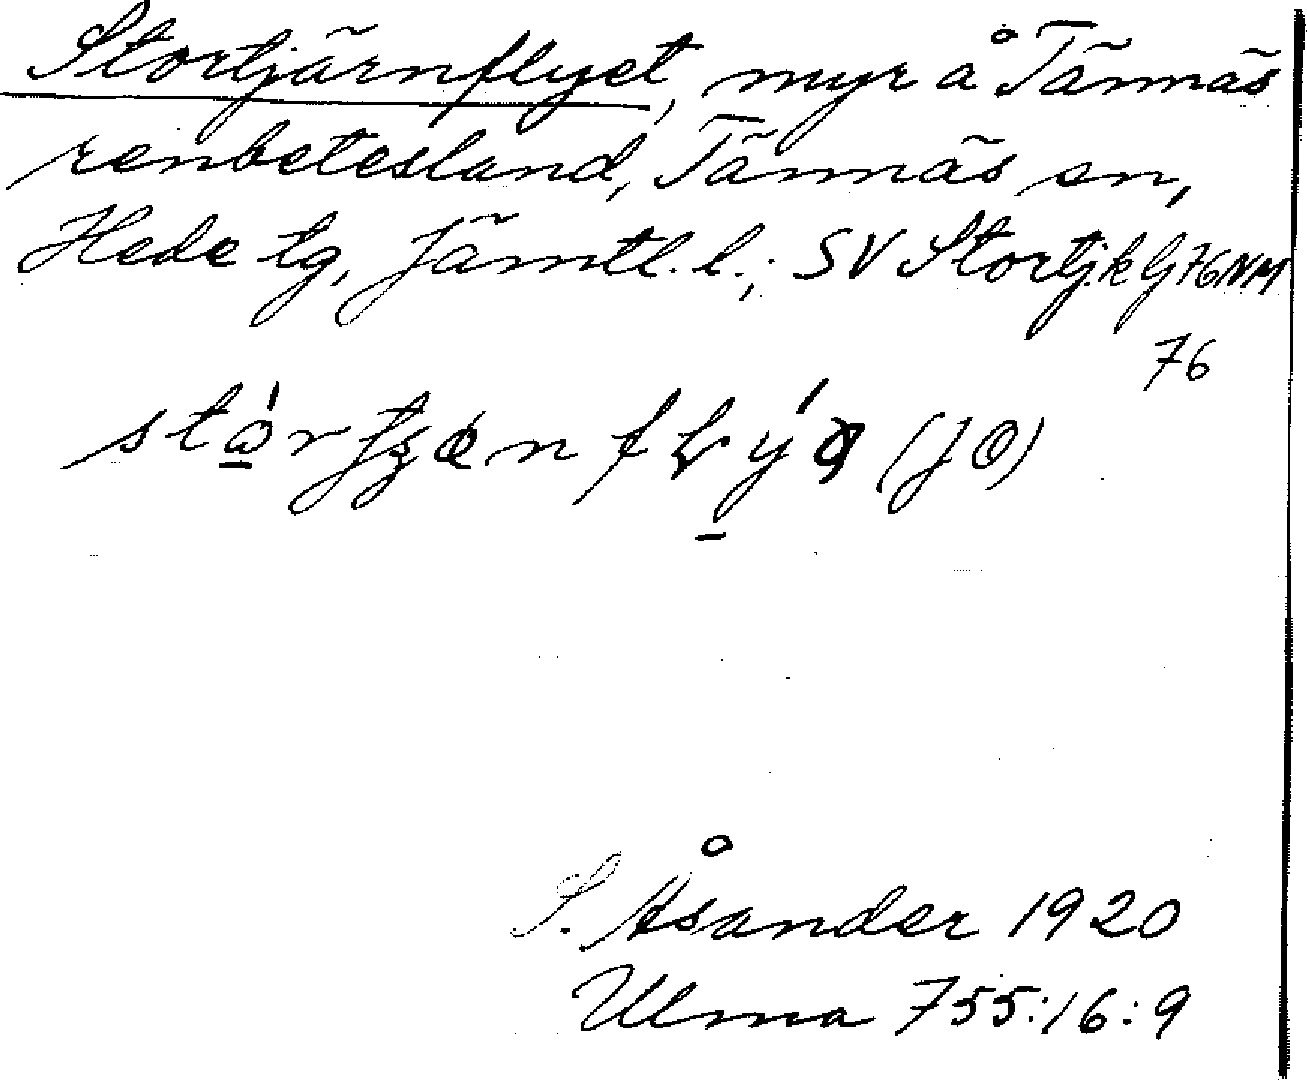 Stortjärnflyet, myr å Tännäs
renbetesland, Tännäs sn,
Hede tg, Jämtl. l.; SV Stortj.k G 76 NM
76
(JO)
S. Åsander 1920
Ulma 755:16:9